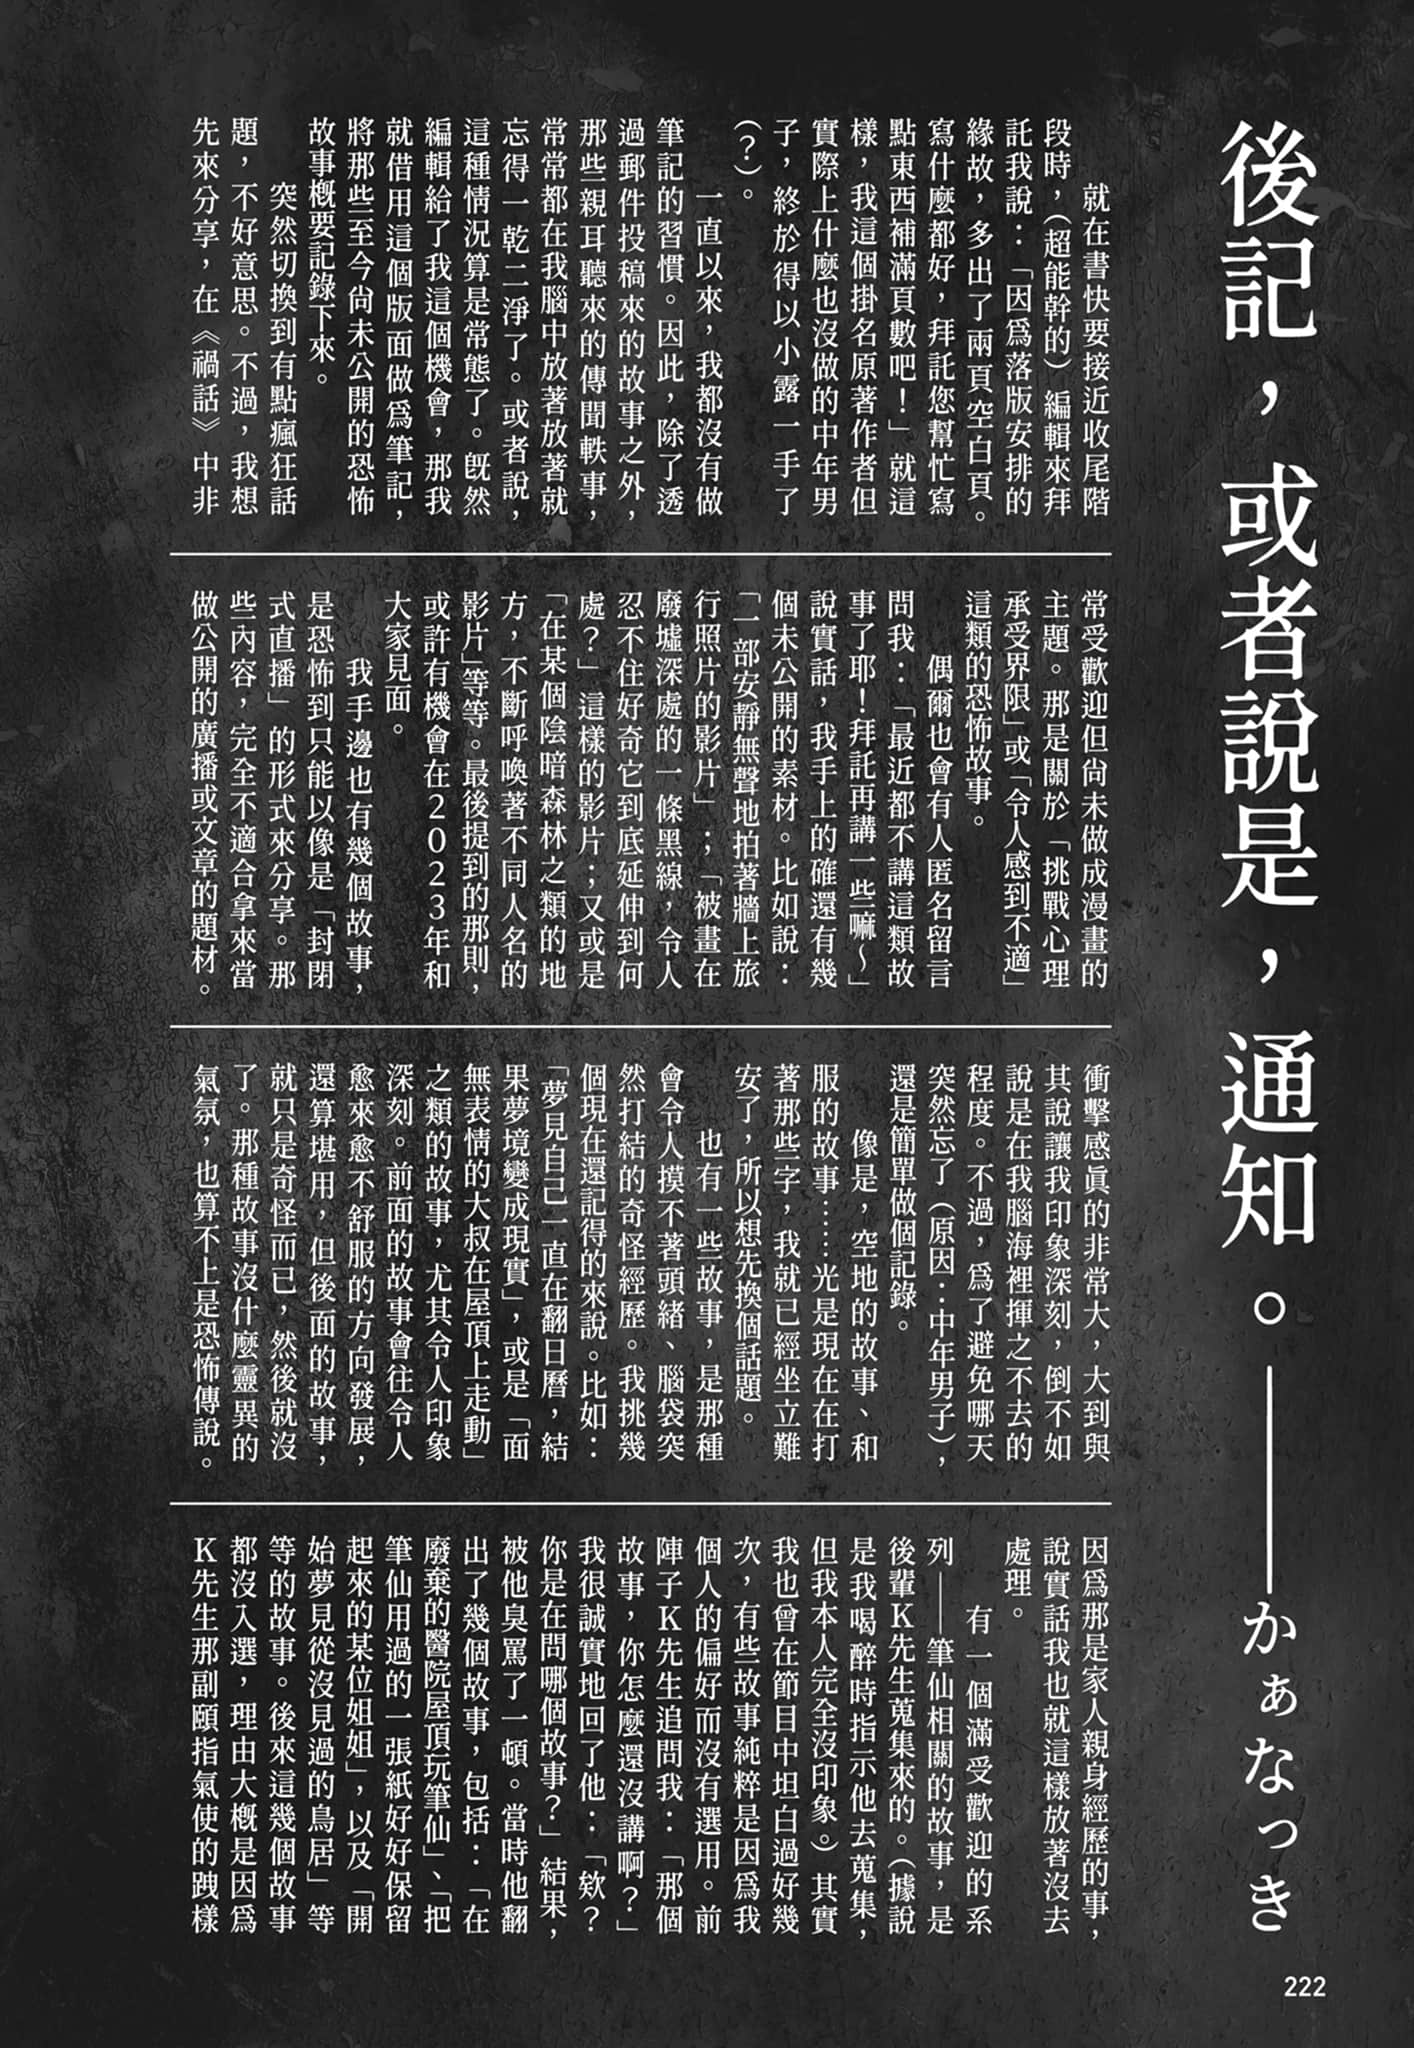 後記，或者說是，通知。——かぁなっき
就在書快要接近收尾階
段時，（超能幹的）編輯來拜
託我說：「因為落版安排的
緣故，多出了兩頁空白頁。
寫什麼都好，拜託您幫忙寫
點東西補滿頁數吧！」就這
樣，我這個掛名原著作者但
實際上什麼也沒做的中年男
子，終於得以小露一手了
（？）。
一直以來，我都沒有做
筆記的習慣。因此，除了透
過郵件投稿來的故事之外，
那些親耳聽來的傳聞軼事，
常常都在我腦中放著放著就
忘得一乾二淨了。或者說，
這種情況算是常態了。既然
編輯給了我這個機會，那我
就借用這個版面做為筆記，
將那些至今尚未公開的恐怖
故事概要記錄下來。
突然切換到有點瘋狂話
題，不好意思。不過，我想
先來分享，在《禍話》中非
常受歡迎但尚未做成漫畫的
主題。那是關於「挑戰心理
承受界限」或「令人感到不適」
這類的恐怖故事。
偶爾也會有人匿名留言
問我：「最近都不講這類故
事了耶！拜託再講一些嘛～」
說實話，我手上的確還有幾
個未公開的素材。比如說：
「一部安靜無聲地拍著牆上旅
行照片的影片」；「被畫在
廢墟深處的一條黑線，令人
忍不住好奇它到底延伸到何
處？」這樣的影片；又或是
「在某個陰暗森林之類的地
方，不斷呼喚著不同人名的
影片」等等。最後提到的那則，
或許有機會在2023年和
大家見面。
我手邊也有幾個故事，
是恐怖到只能以像是「封閉
式直播」的形式來分享。那
些內容，完全不適合拿來當
做公開的廣播或文章的題材。
衝擊感真的非常大，大到與
其說讓我印象深刻，倒不如
說是在我腦海裡揮之不去的
程度。不過，為了避免哪天
突然忘了（原因：中年男子），
還是簡單做個記錄。
像是，空地的故事、和
服的故事……光是現在在打
著那些字，我就已經坐立難
安了，所以想先換個話題。
也有一些故事，是那種
會令人摸不著頭緒、腦袋突
然打結的奇怪經歷。我挑幾
個現在還記得的來說。比如：
「夢見自己一直在翻日曆，結
果夢境變成現實」，或是「面
無表情的大叔在屋頂上走動」
之類的故事，尤其令人印象
深刻。前面的故事會往令人
愈來愈不舒服的方向發展，
還算堪用，但後面的故事，
就只是奇怪而已，然後就沒
了。那種故事沒什麼靈異的
氣氛，也算不上是恐怖傳說。
因為那是家人親身經歷的事，
說實話我也就這樣放著沒去
處理。
有一個滿受歡迎的系
列——筆仙相關的故事，是
後輩K先生蒐集來的。（據說
是我喝醉時指示他去蒐集，
但我本人完全沒印象。）其實
我也曾在節目中坦白過好幾
次，有些故事純粹是因為我
個人的偏好而沒有選用。前
陣子K先生追問我：「那個
故事，你怎麼還沒講啊？」
我很誠實地回了他：「欸？
你是在問哪個故事？」結果，
被他臭罵了一頓。當時他翻
出了幾個故事，包括：「在
廢棄的醫院屋頂玩筆仙」、「把
筆仙用過的一張紙好好保留
起來的某位姐姐」，以及「開
始夢見從沒見過的鳥居」等
等的故事。後來這幾個故事
都沒入選，理由大概是因為
K先生那副頤指氣使的跩樣
222